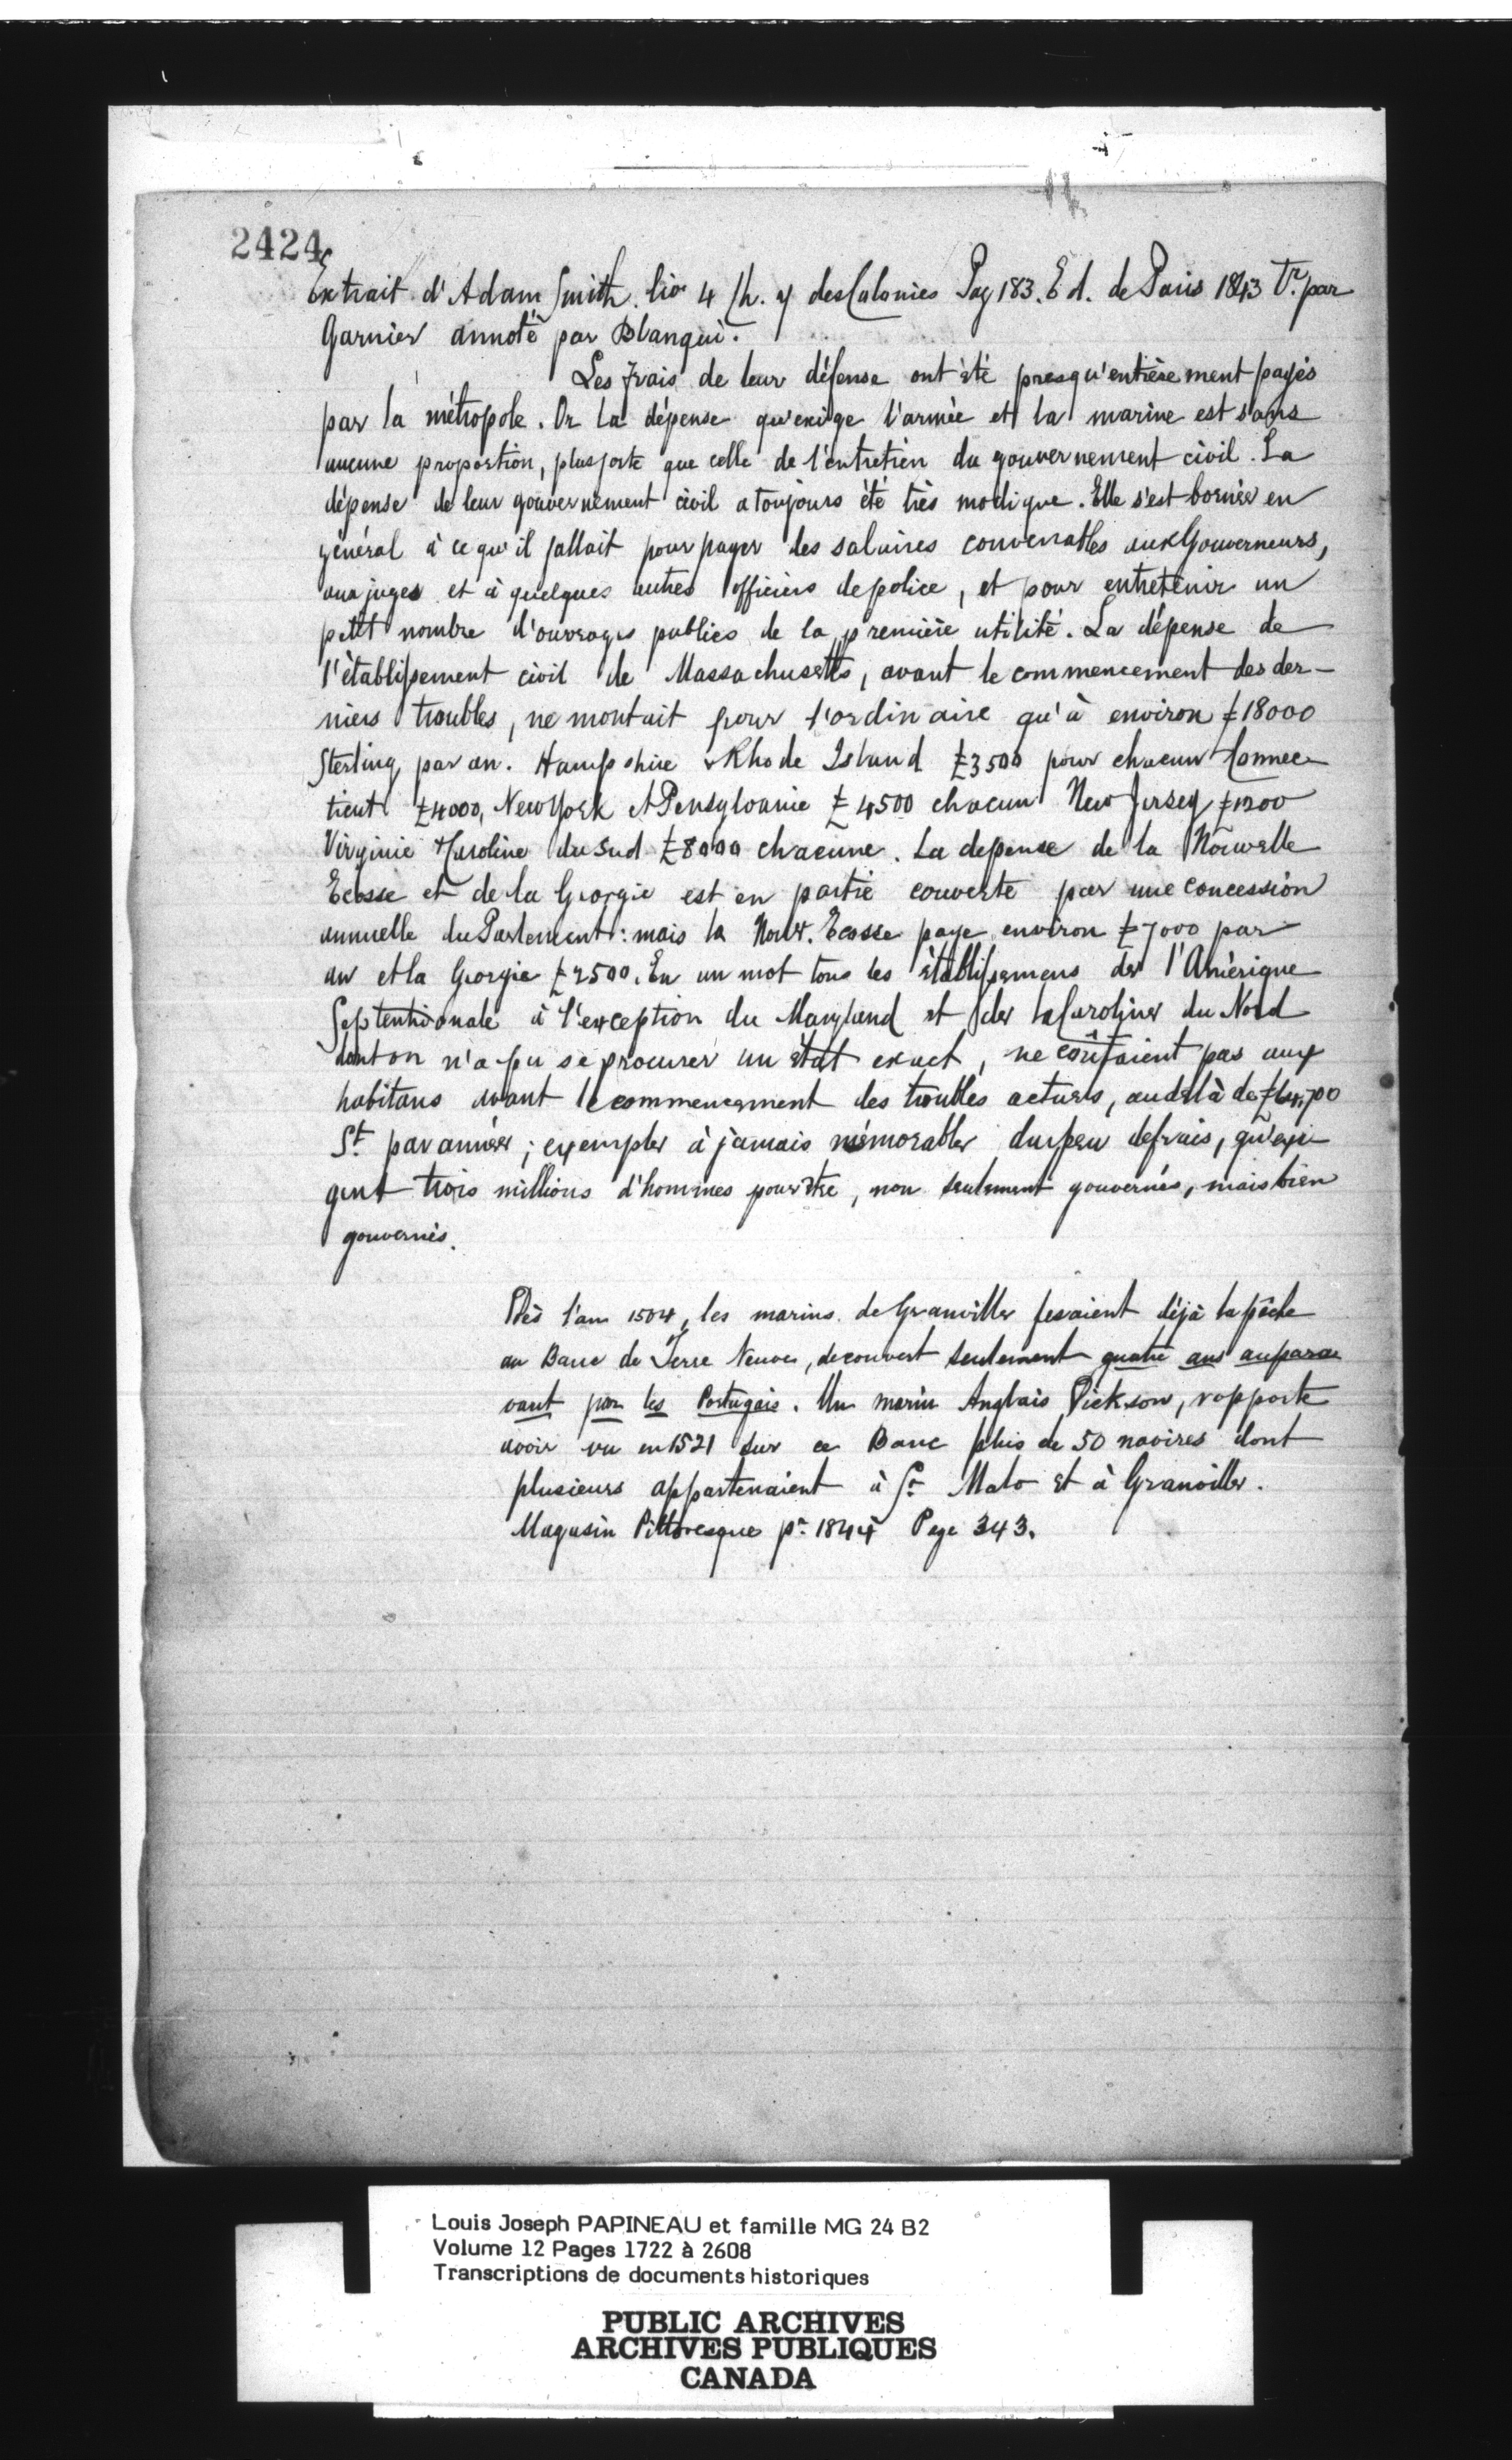 2424
Extrait d'Adam Smith. liv 4 Ch. 7 des Colonies Pag 183. Ed. de Paris 1843 Tr. par
Garnier annoté par Blanqui.
Les frais de leur défense ont été presqu'entièrement payés
par la métropole. Or la dépense qu'exige l'armée et la marine est sans
aucune proportion, plus forte que celle de l'entretien du gouvernement civil. La
dépense de leur gouvernement civil a toujours été très modique. Elle s'est bornée en
général à ce qu'il fallait pour payer des salaires convenables aux Gouverneurs,
aux juges et à quelques autres officiers de police, et pour entretenir un
petit nombre d'ouvrages publics de la première utilité. La dépense de
l'établissement civil de Massachusetts, avant le commencement des der-
niers troubles, ne montait pour l'ordinaire qu'à environ £18000
Sterling par an. Hampshire & Rhode Island £3500 pour chacun Connec
ticut £4000, New York et Pensylvanie £4500 chacun New Jersey £1200
Virginie & Caroline du Sud £8000 chacune. La depense de la Nouvelle
Ecosse et de la Georgie est en partie couverte par une concession
annuelle du Parlement: mais la Nouv. Ecosse paye environ £7000 par
an et la Georgie £2500. En un mot tous les établissemens de l'Amérique
Septentrionale à l'exception du Maryland et de la Caroline du Nord
dont on n'a pu se procurer un état exact, ne coûtaient pas aux
habitans avant le commencement des troubles actuels, au delà de £64,700
St. par année; exemple à jamais mémorable du peu de frais, qu'exi
gent trois millions d'hommes pour être, non seulement gouvernés, mais bien
gouvernés.
Dès l'an 1504, les marins de Granville fesaient déjà la pêche
au Banc de Terre Neuve, decouvert seulement quatre ans aupara
vant par les Portugais. Un marin Anglais Dickson, rapporte
avoir vu en 1521 sur ce Banc plus de 50 navires dont
plusieurs appartenaient à St. Malo et à Granville.
Magasin Pittoresque pr. 1844 Page 343.
Louis Joseph PAPINEAU et famille MG 24 B2
Volume 12 Pages 1722 à 2608
Transcriptions de documents historiques
PUBLIC ARCHIVES
ARCHIVES PUBLIQUES
CANADA